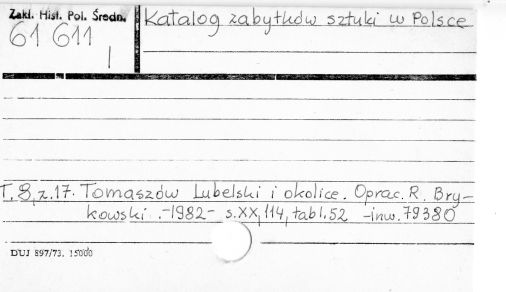 Zakł. Hist. Pol. Średn.
61 611
I
Katalog zabytków sztuki w Polsce
T. 8, z. 17. Tomaszów Lubelski i okolice. Oprac. R. Bry-
kowski. -1982- s. XX, 114, tabl. 52 -inw. 79380
DUJ 897/73. 15000